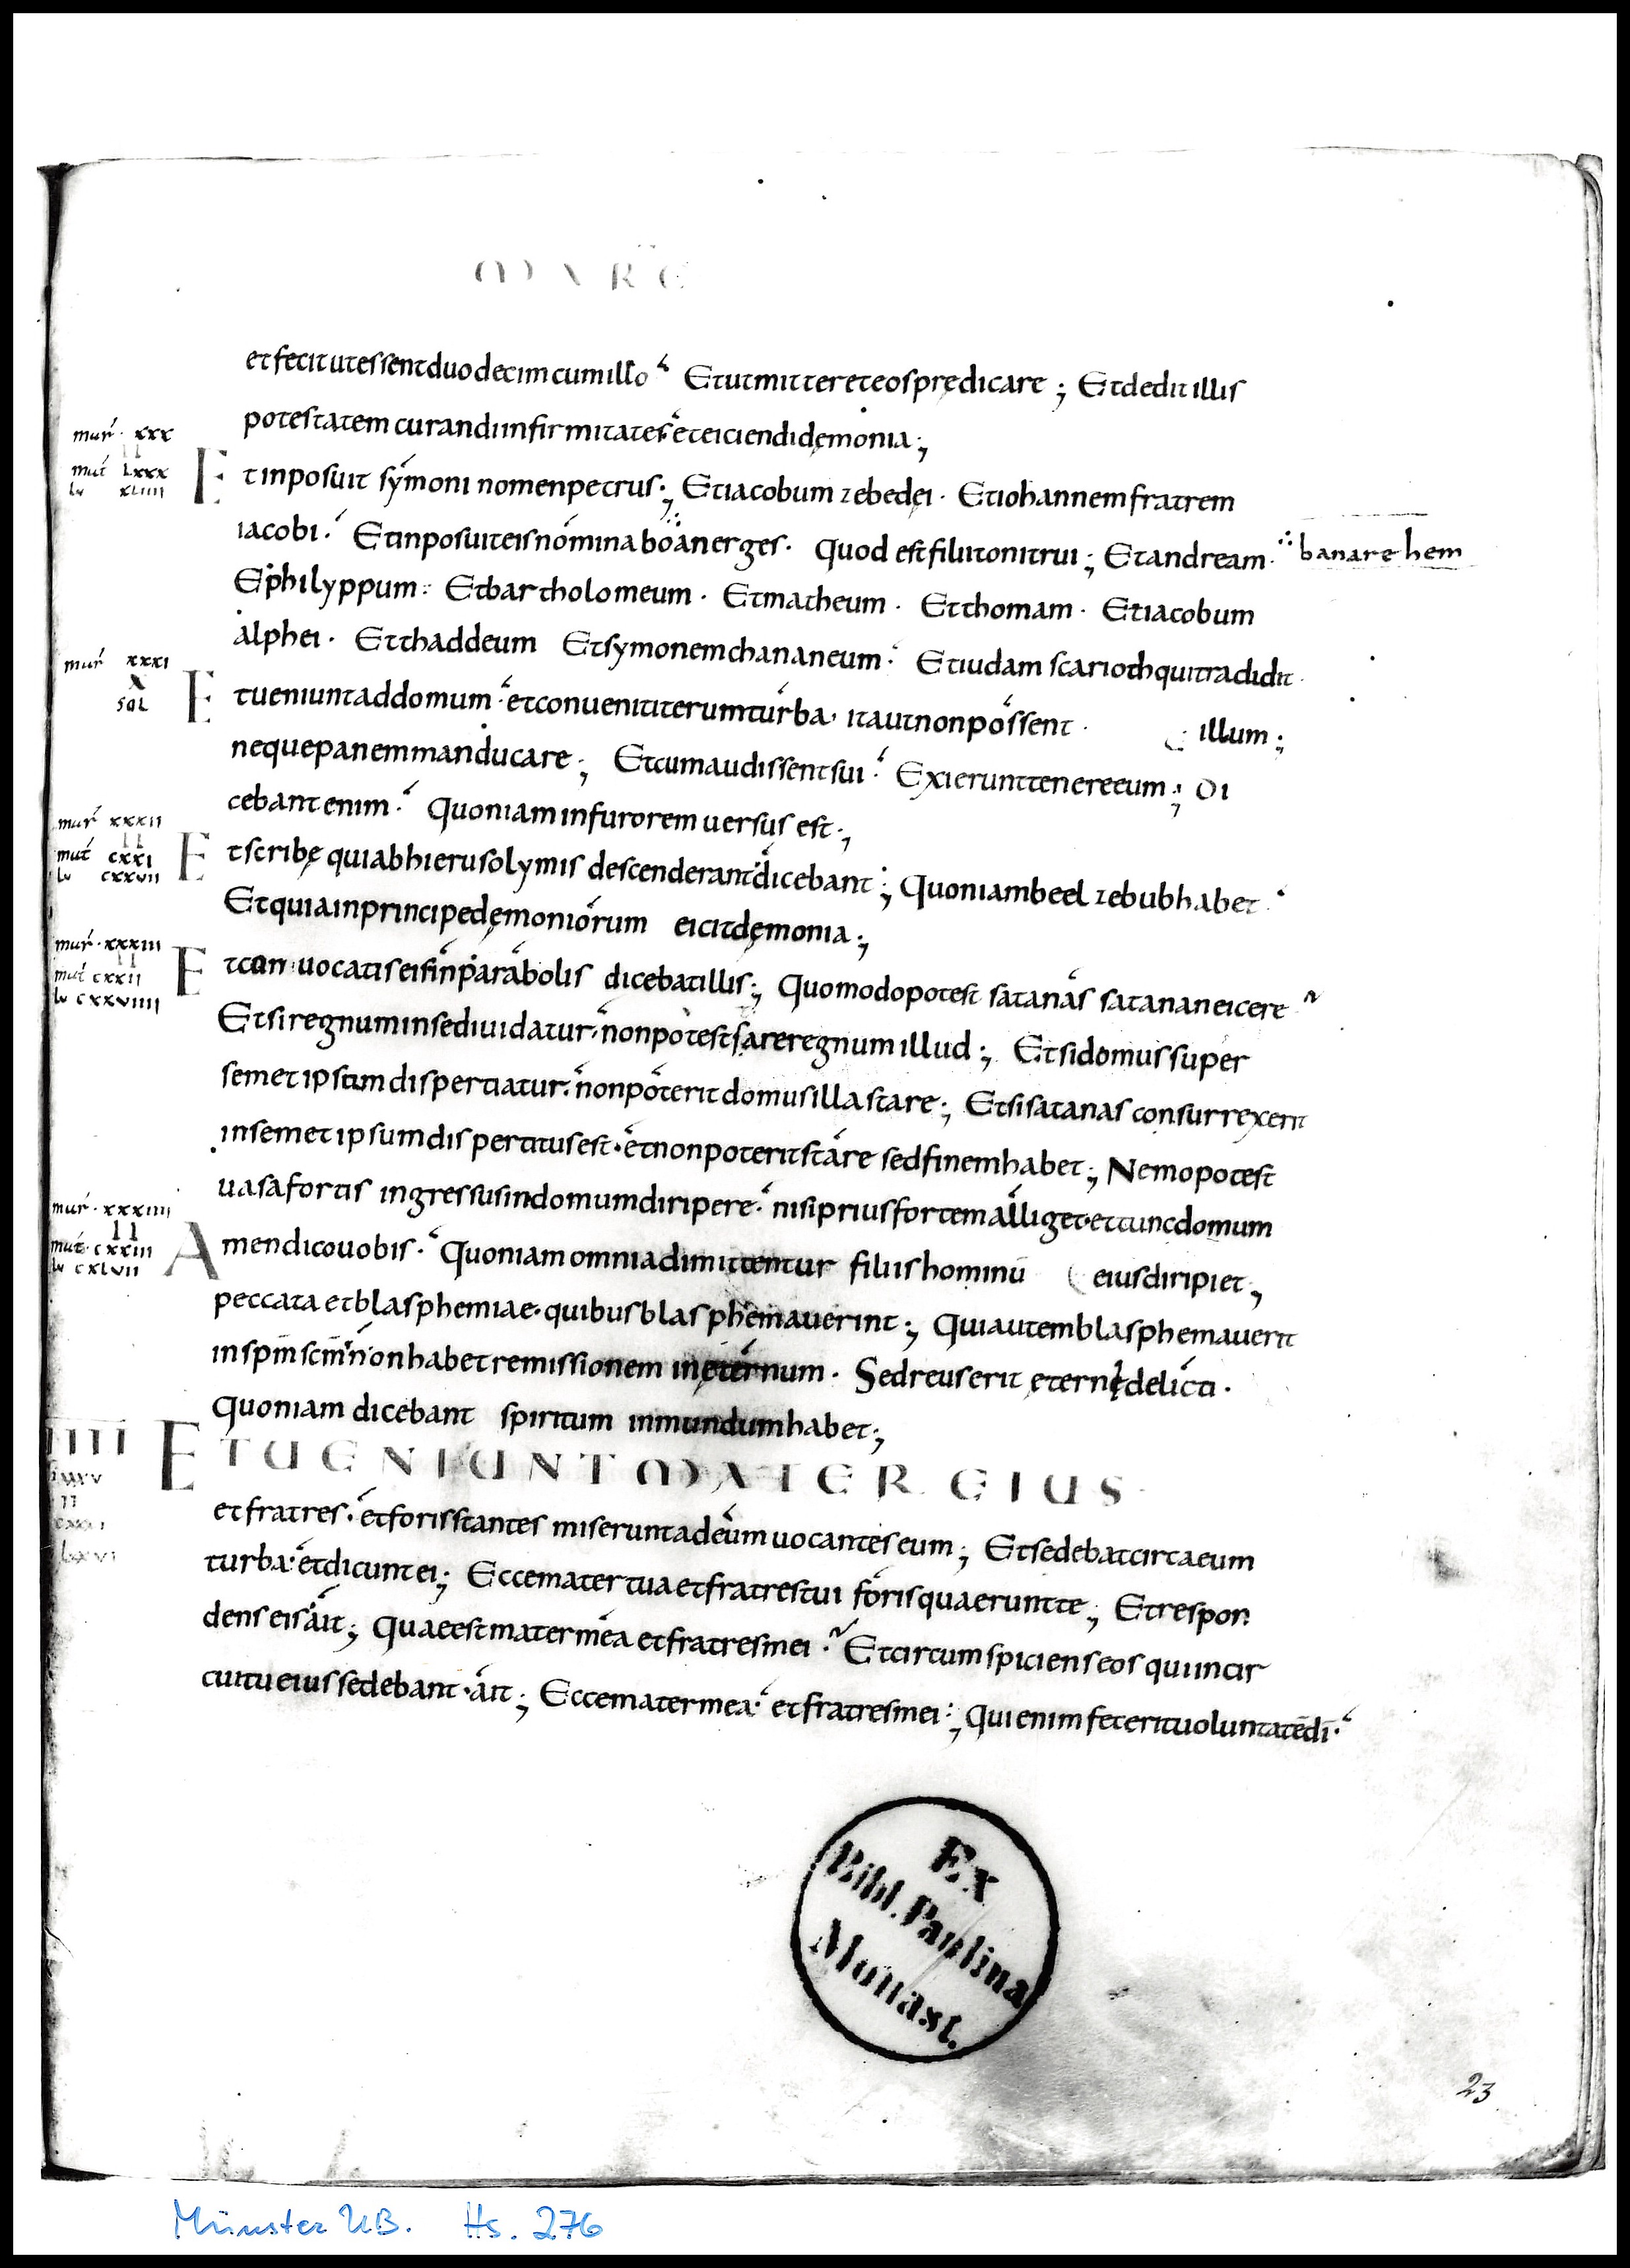 MARC
et fecit ut essent duodecim cum illo. Et ut mitteret eos prędicare; Et dedit illis
potestatem curandi infirmitates. et eiciendi dęmonia;
mar. xxx
II
mat lxxx
lu xliiii
Et inposuit symoni nomen petrus; Et iacobum zebedęi. Et iohannem fratrem
iacobi. Et inposuit eis nomina boanerges. Quod est filii tonitrui; Et andream. banarehem
Et philyppum. Et bartholomeum. Et matheum. Et thomam. Et iacobum
alphei. Et thaddeum Et symonem chananeum. Et iudam scarioth qui tradidit.
mar xxxi
X
sol
Et ueniunt ad domum. et conuenit iterum turba. ita ut non possent. illum;
neque panem manducare; Et cum audissent sui. Exierunt tenere eum; Di
cebant enim. Quoniam in furorem uersus est;
mar xxxii
II
mat cxxi
lu cxxvii
Et scribę qui ab hierusolymis descenderant dicebant; Quoniam beelzebub habet.
Et quia in principe dęmoniorum eicit dęmonia;
mar. xxxiii
II
mat cxxii
lu cxxviiii
Et conuocatis eis in parabolis dicebat illis; Quomodo potest satanas satanan eicere
Et si regnum in se diuidatur. non potest stare regnum illud; Et si domus super
semet ipsum dispertiatur. non poterit domus illa stare; Et si satanas consurrexerit
in semet ipsum dispertitus est. et non poterit stare sed finem habet; Nemo potest
uasa fortis ingressus in domum diripere. nisi prius fortem alliget. et tunc domum
mar. xxxiiii
II
mat. cxxiii
lu cxlvii
Amen dico uobis. Quoniam omnia dimittentur filiis hominū eius diripiet;
peccata et blasphemiae. quibus blasphemauerint; Qui autem blasphemauerit
in sp̄m sc̄m non habet remissionem in ęternum. Sed reus erit ęternę delicti.
Quoniam dicebant spiritum inmundum habet;
IIII
ET UENIUNT MATER EIUS
et fratres. et foris stantes miserunt ad eum uocantes eum; Et sedebat circa eum
turba. et dicunt ei; Ecce mater tua et fratres tui foris quaerunt te; Et respon
dens eis ait; Quae est mater mea et fratres mei. Et circumspiciens eos qui in cir
cuitu eius sedebant. ait; Ecce mater mea. et fratres mei; Qui enim fecerit uoluntatē dī.
Ex
Bibl. Paulina
Monast.
23
Münster UB. Hs. 276